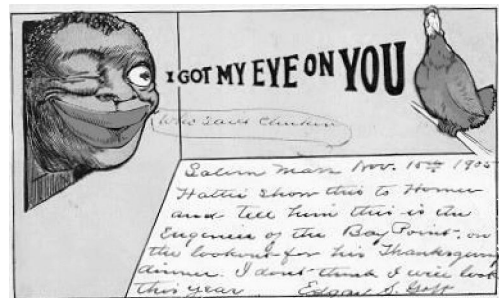 I GOT MY EYE ON YOU
Who Said Chicken
Salem Mass Nov. 15th 1905
Hattie Show this to Homer
and tell him this is the
Engineer of the Bay Point. on
the lookout for his Thanksgiving
dinner. I dont think I will look
this year Edgar S. Goff